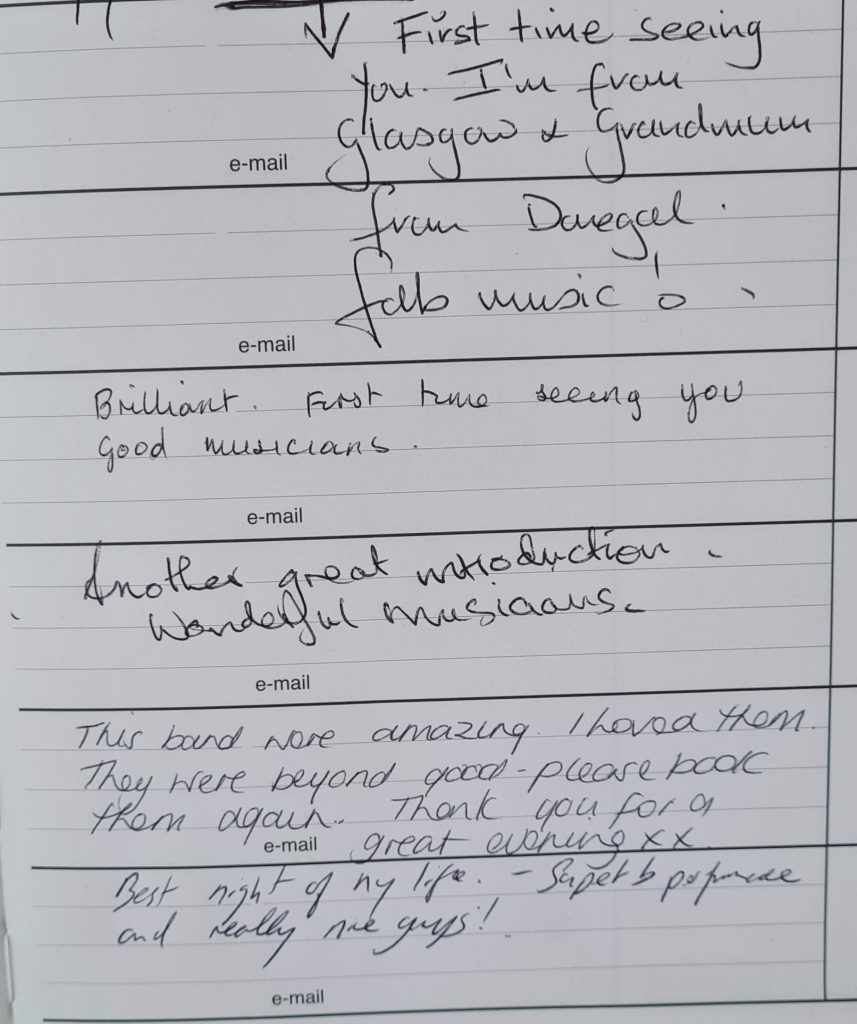 First time seeing
you. I'm from
Glasgow & Grandmum
e-mail
from Donegal.
fab music !
e-mail
Brilliant. First time seeing you
Good musicians.
e-mail
Another great introduction.
Wonderful musicians.
e-mail
This band were amazing. I loved them.
They were beyond good - please book
them again.. Thank you for a
e-mail great evening xx
Best night of my life. - Superb performance
and really nice guys!
e-mail